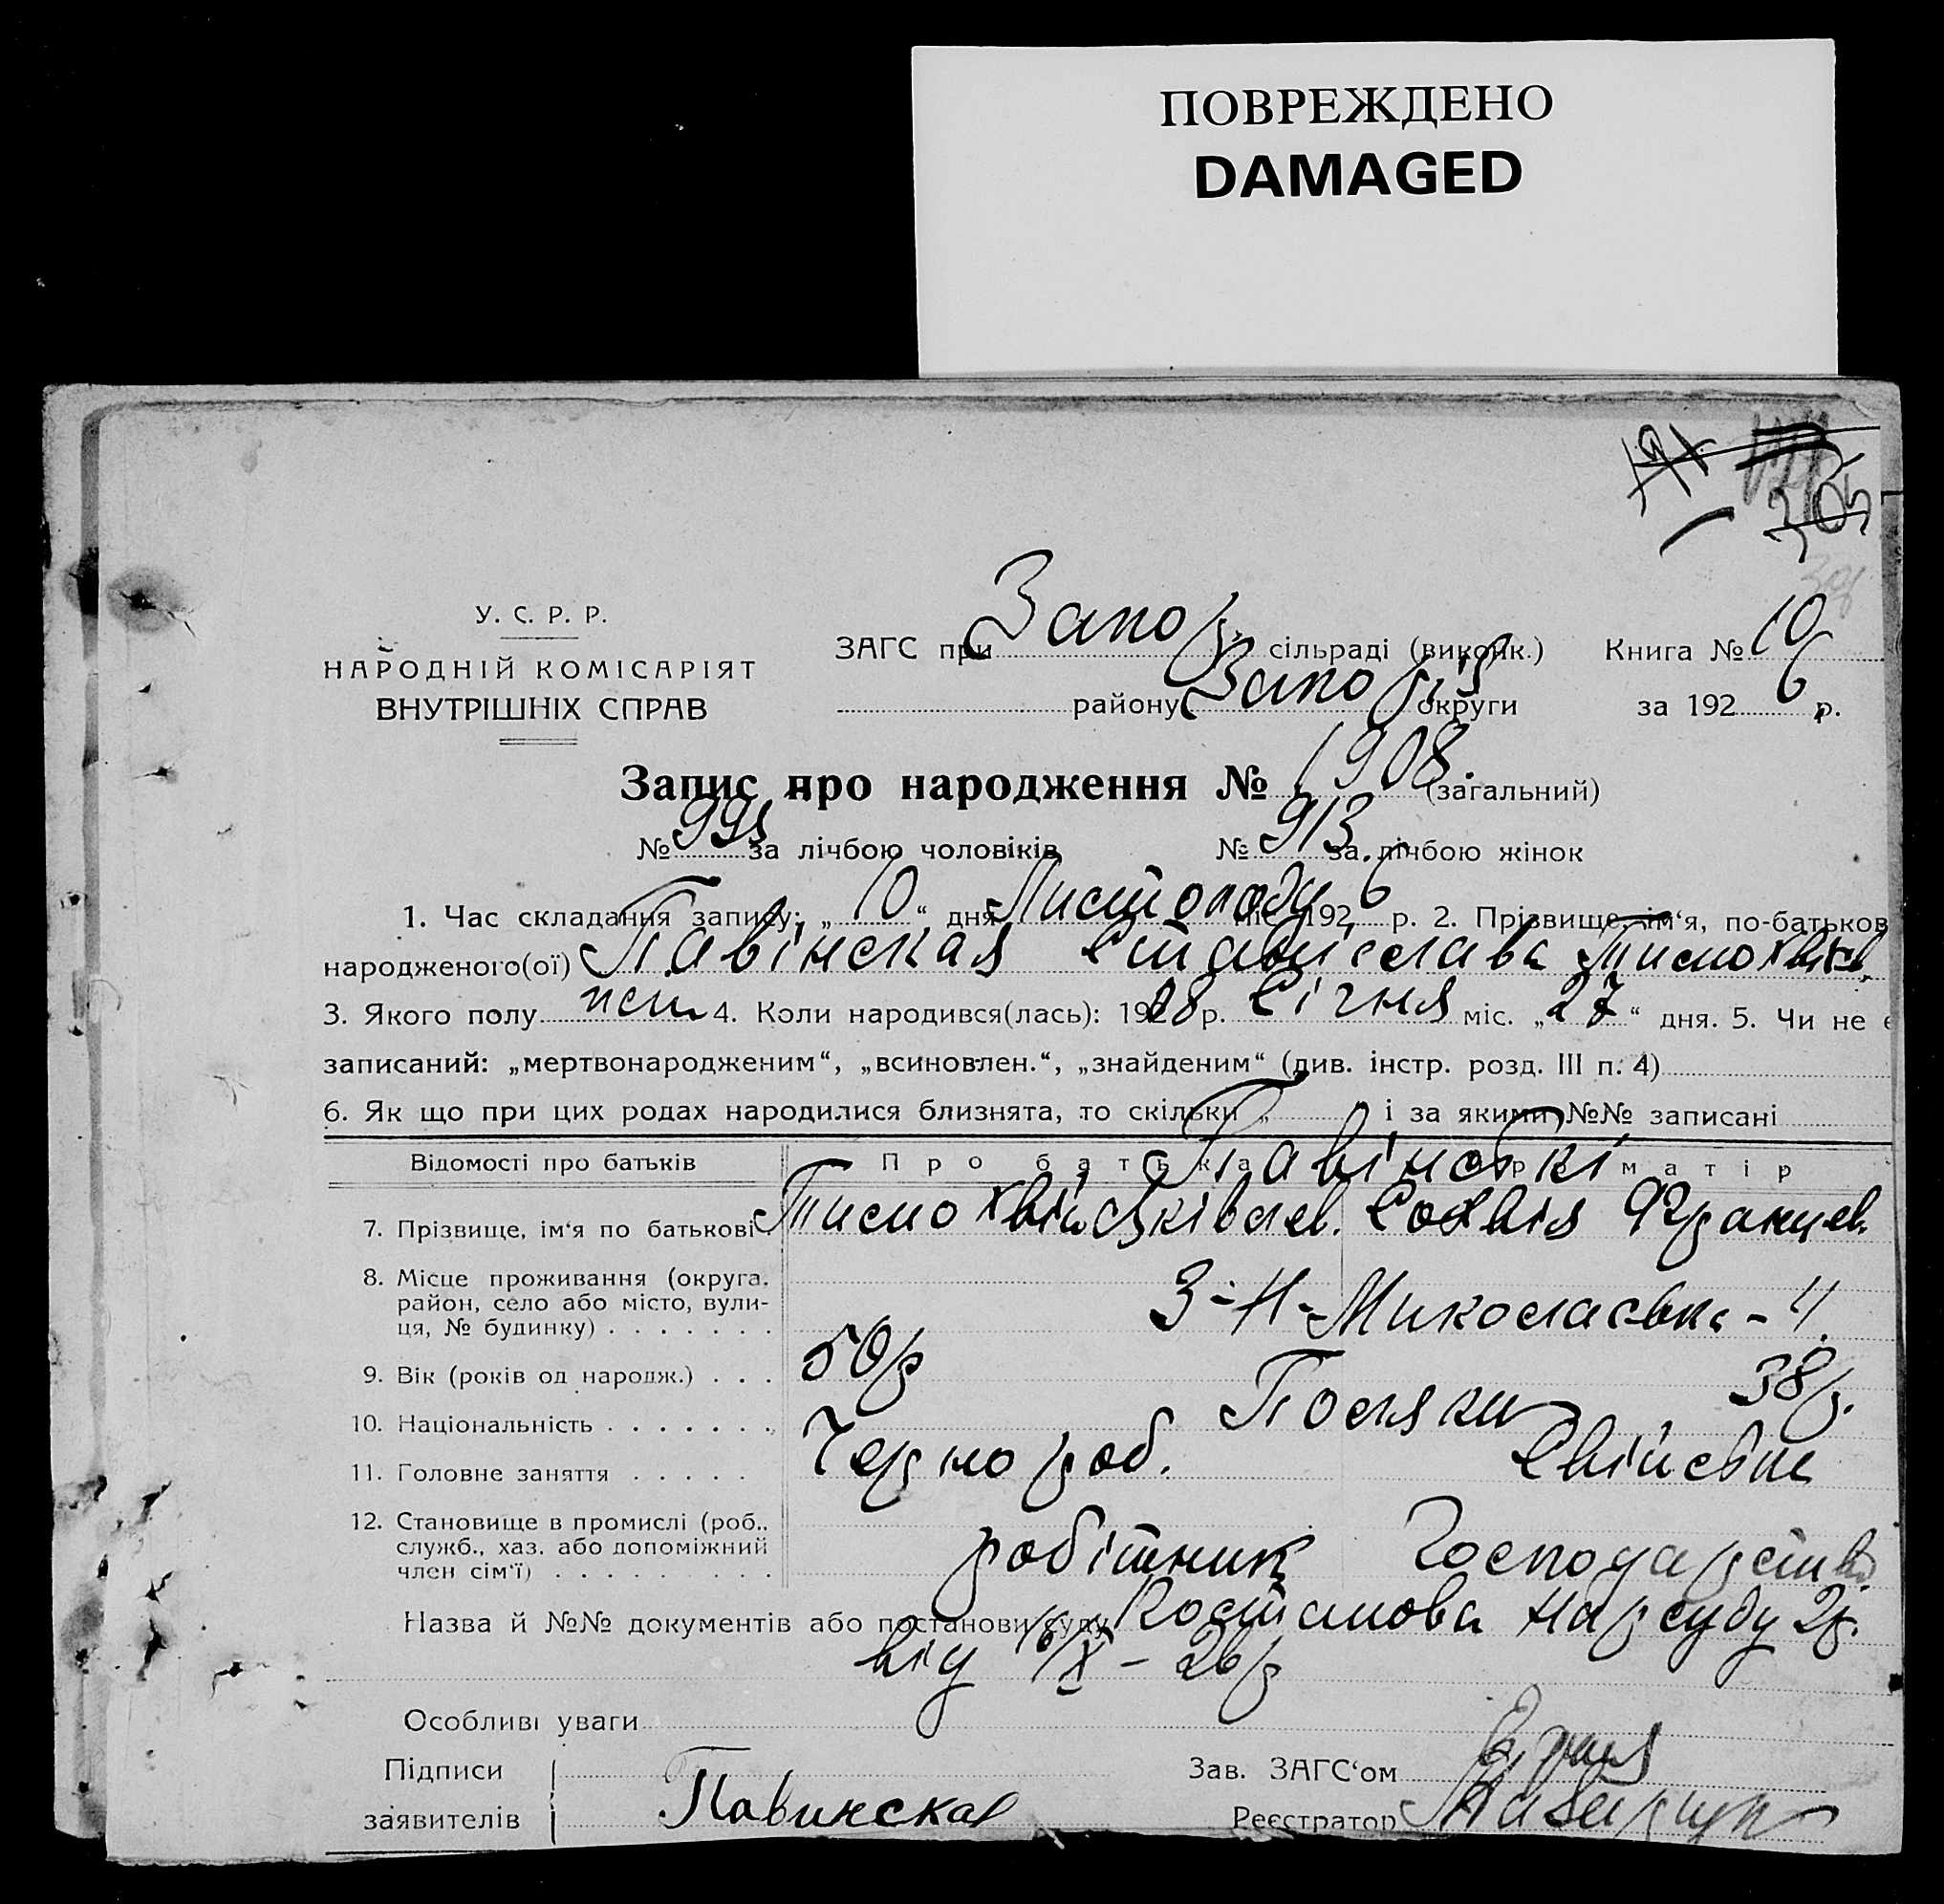 ПОВРЕЖДЕНО
DAMAGED
У. С. Р. Р.
НАРОДНІЙ КОМІСАРІЯТ
ВНУТРІШНІХ СПРАВ
ЗАГС при Запор. сільраді (виконк.) Книга № 10
району Запоріз округи за 1926 р.
Запис про народження № 1908. (загальний)
№ 995 за лічбою чоловіків № 913 за лічбою жінок
1. Час складання запису: „10“ дня Листопаду міс. 1926 р. 2. Прізвище, ім‘я, по-батьков
народженого(ої) Павінская Станіслава
3. Якого полу 4. Коли народився(лась): 1908 р. Січня міс. „27“ дня. 5. Чи не є
записаний: „мертвонародженим“, „всиновлен.“, „знайденим“ (див. інстр. розд. III п. 4)
6. Як що при цих родах народилися близнята, то скільки „ “ і за якими №№ записані
Відомості про батьків Про батька Про матір
Павінскі
7. Прізвище, ім‘я по батькові Софія Францев.
8. Місце проживання (округа,
район, село або місто, вули-
ця, № будинку) . . . . . . . З-Н-Миколаевка-
9. Вік (років од народж.) . . . 50р 38р.
10. Національність . . . . . . . Поляки
11. Головне заняття . . . . . Чернороб.
12. Становище в промислі (роб.,
служб., хаз. або допоміжний
член сім‘ї) . . . . . . . . . робітник Господарство
Назва й №№ документів або постанови суду Постанова Нарсуду 2р.
від 16/X - 26р
Особливі уваги
Підписи Зав. ЗАГС‘ом
заявителів Павинская Реєстратор